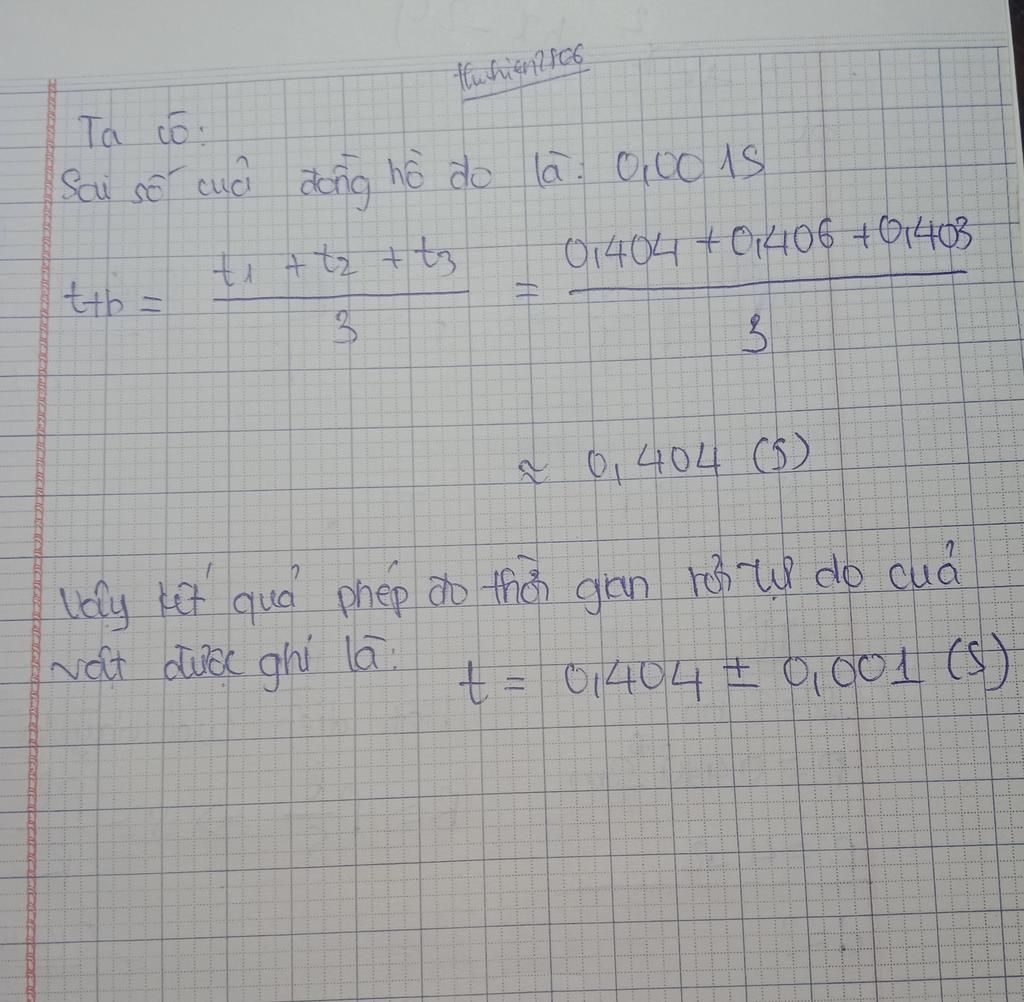 thuhien2806
Ta có:
Sai số của đồng hồ đo là: 0,001S
t+b = (t1 + t2 + t3) / 3 = (0,404 + 0,406 + 0,403) / 3
≈ 0,404 (S)
Vậy kết quả phép đo thời gian rơi tự do của
vật được ghi là: t = 0,404 ± 0,001 (S)